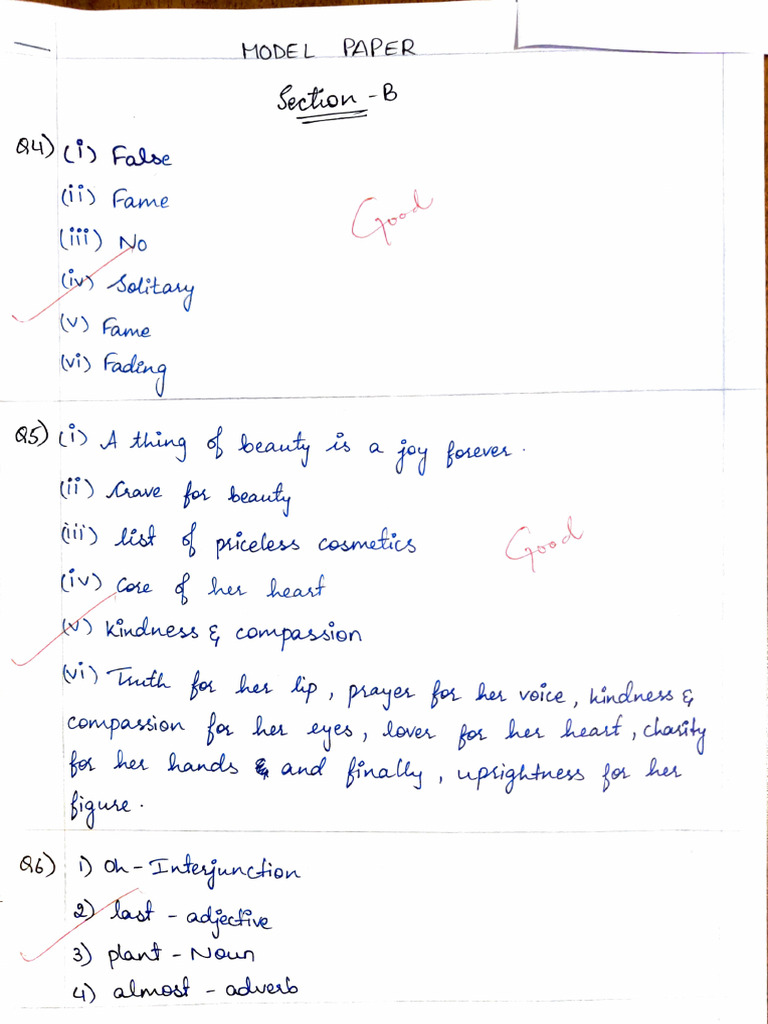 MODEL PAPER
Section - B
Q4) (i) False
(ii) Fame
Good
(iii) No
(iv) Solitary
(v) Fame
(vi) Fading
Q5) (i) A thing of beauty is a joy forever.
(ii) Crave for beauty
(iii) list of priceless cosmetics
Good
(iv) Core of her heart
(v) kindness & compassion
(vi) Truth for her lip, prayer for her voice, kindness &
compassion for her eyes, lover for her heart, charity
for her hands & and finally, uprightness for her
figure.
Q6) 1) Oh - Interjunction
2) last - adjective
3) plant - Noun
4) almost - adverb